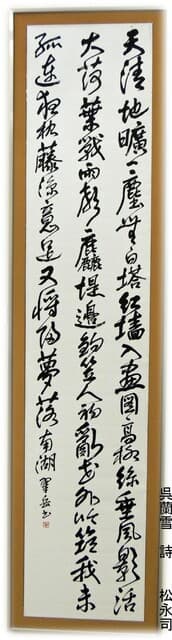 天清地曠一塵無白塔紅墻入畫圖高柳絲垂風影活
大荷葉戰雨聲麤堤邊釣笠人初散花外吟筇我未
孤枕藤涼意足又將歸夢落南湖
吳蘭雪 詩 松永司